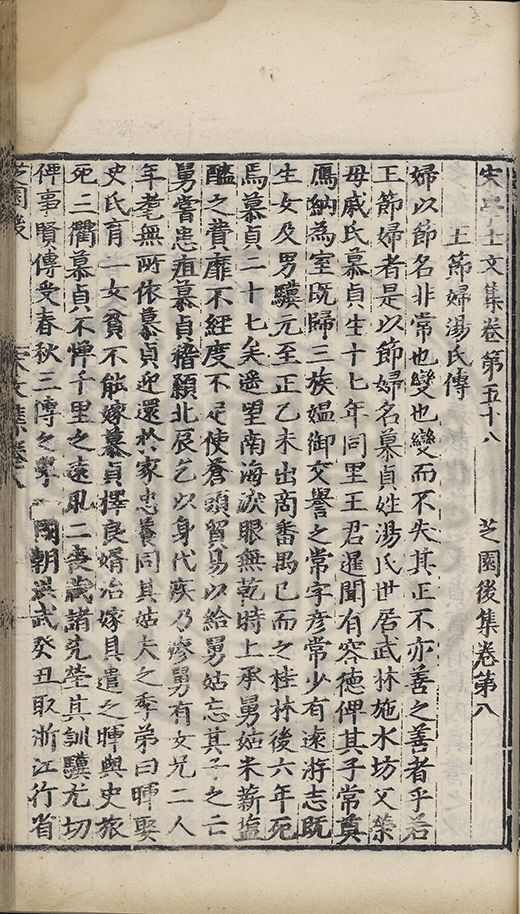 宋學士文集卷第五十八　芝園後集卷第八
王節婦湯氏傳
婦以節名非常也變也變而不失其正不亦善之善者乎若
王節婦者是以節婦名慕貞姓湯氏世居武林施水坊父榮
母戚氏慕貞生十七年同里王君暹聞有容德俾其子常奠
鴈納為室既歸三族媼御交譽之常字彦常少有遠游志既
生女及男驥元至正乙未出商番禺已而之桂林後六年死
焉慕貞二十七矣遥望南海淚眼無乾時上承舅姑米薪塩
醯之費靡不經度不足使蒼頭貿易以給舅姑忘其子之亡
舅嘗患疽慕貞稽顙北辰乞以身代疾乃瘳舅有女兄二人
年耄無所依慕貞迎還於家忠養同其姑夫之季弟曰暉娶
史氏育一女貧不能嫁慕貞擇良婿治嫁具遣之暉與史旅
死三衢慕貞不憚千里之遠取二喪歲諸先塋其訓驥尤切
俾事賢傳受春秋三傳之學　國朝洪武癸丑取浙江行省
芝園後